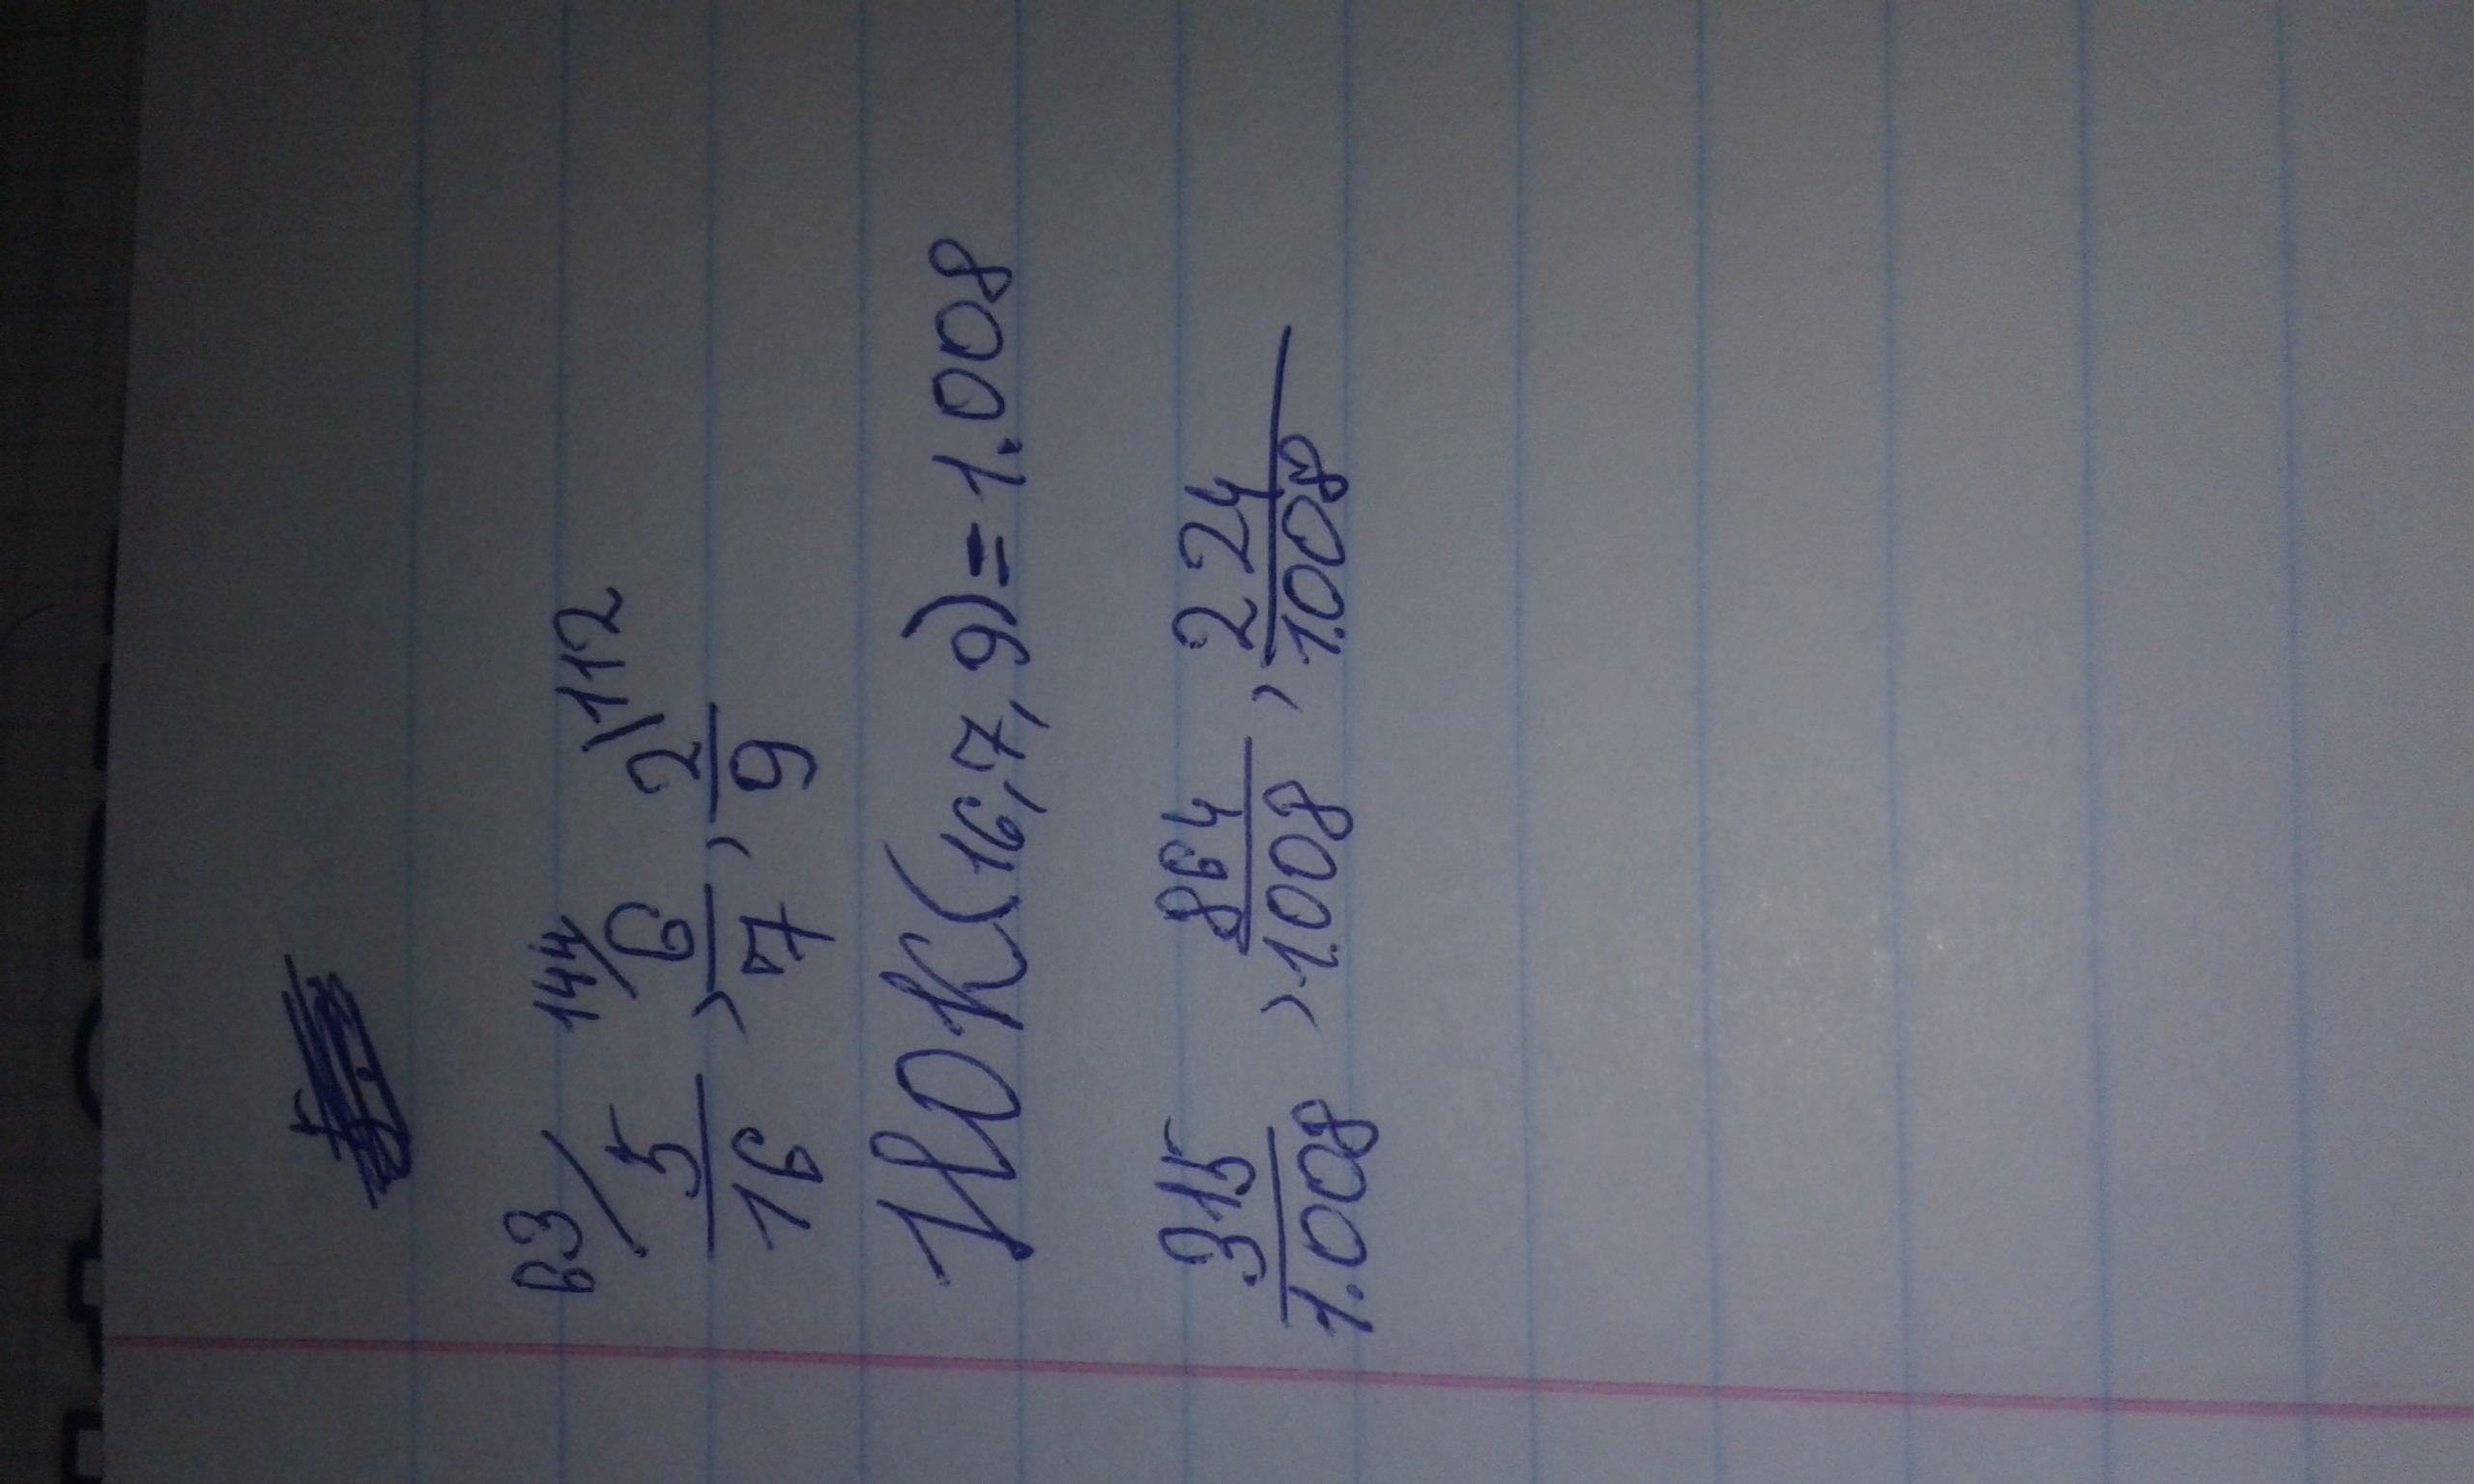 63/ 144/ \112
5/16 , 6/7 , 2/9
НОК(16,7,9)=1.008
315/1.008 , 864/1.008 , 224/1.008